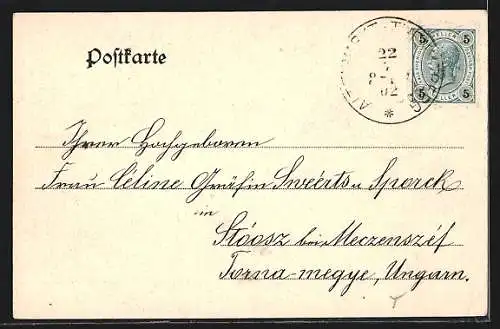 Postkarte
5 5
HELLER
5 5
22
02
*
Ihrer Hochgeboren
Frau Céline Gräfin Sweérts u Sporck
in
Stóosz bei Meczenszéf
Torna-megye, Ungarn.